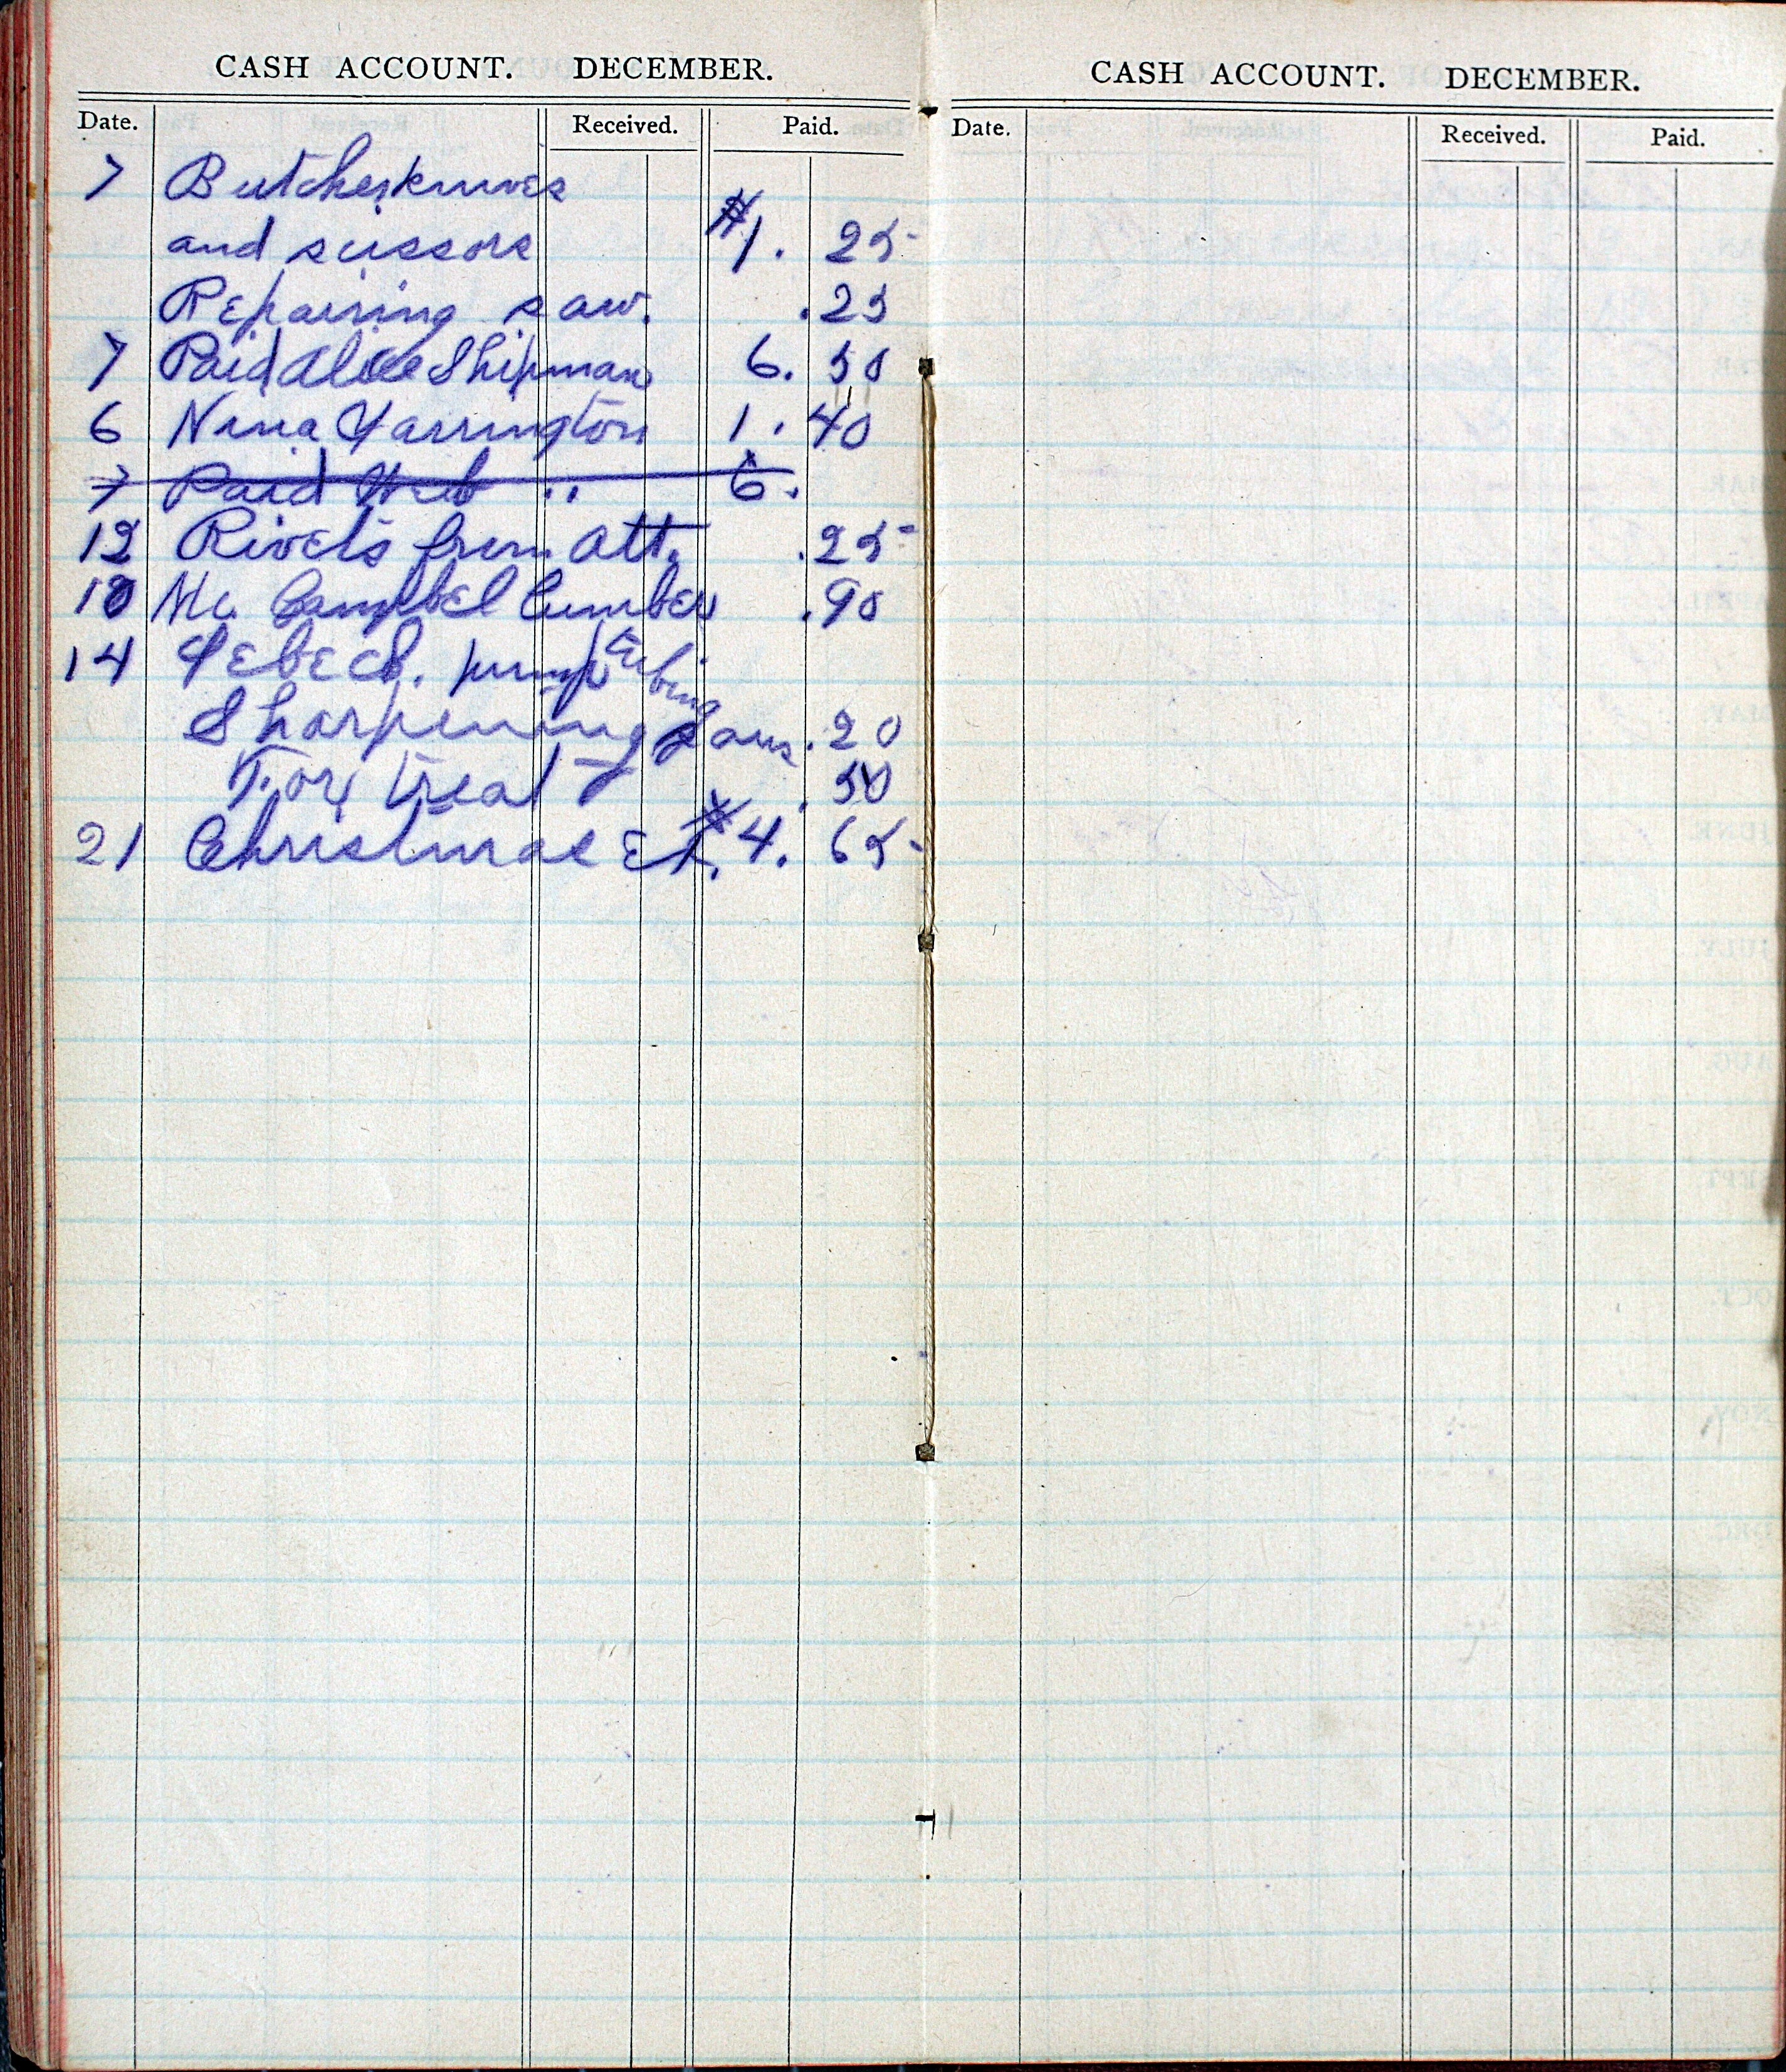 CASH ACCOUNT. DECEMBER.
Date. Received. Paid.
7 Butcherknives
and scissors $1. 25
Repairing saw. .25
7 Paid Alice Shipman 6. 50
6 Nina Yarrington 1. 40
7 Paid Web " 6.
12 Rivets from Att. .25
10 Mc Campbel Lumber .90
14 pump tubing
Sharpening saw. .20
For treat .50
21 Christmas Et. $4. 65
CASH ACCOUNT. DECEMBER.
Date. Received. Paid.